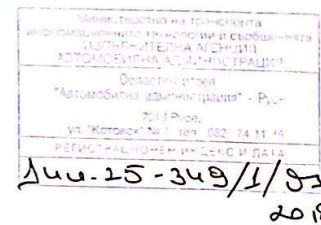 Министерство на транспорта
информационните технологии и съобщенията
ИЗПЪЛНИТЕЛНА АГЕНЦИЯ
АВТОМОБИЛНА АДМИНИСТРАЦИЯ
Областен отдел
"Автомобилна администрация" - Русе
7013 Русе,
ул. "Котовск" № 1, тел. 082/ 74 11
РЕГИСТРАЦИОНЕН ИНДЕКС И ДАТА
25-349/1/